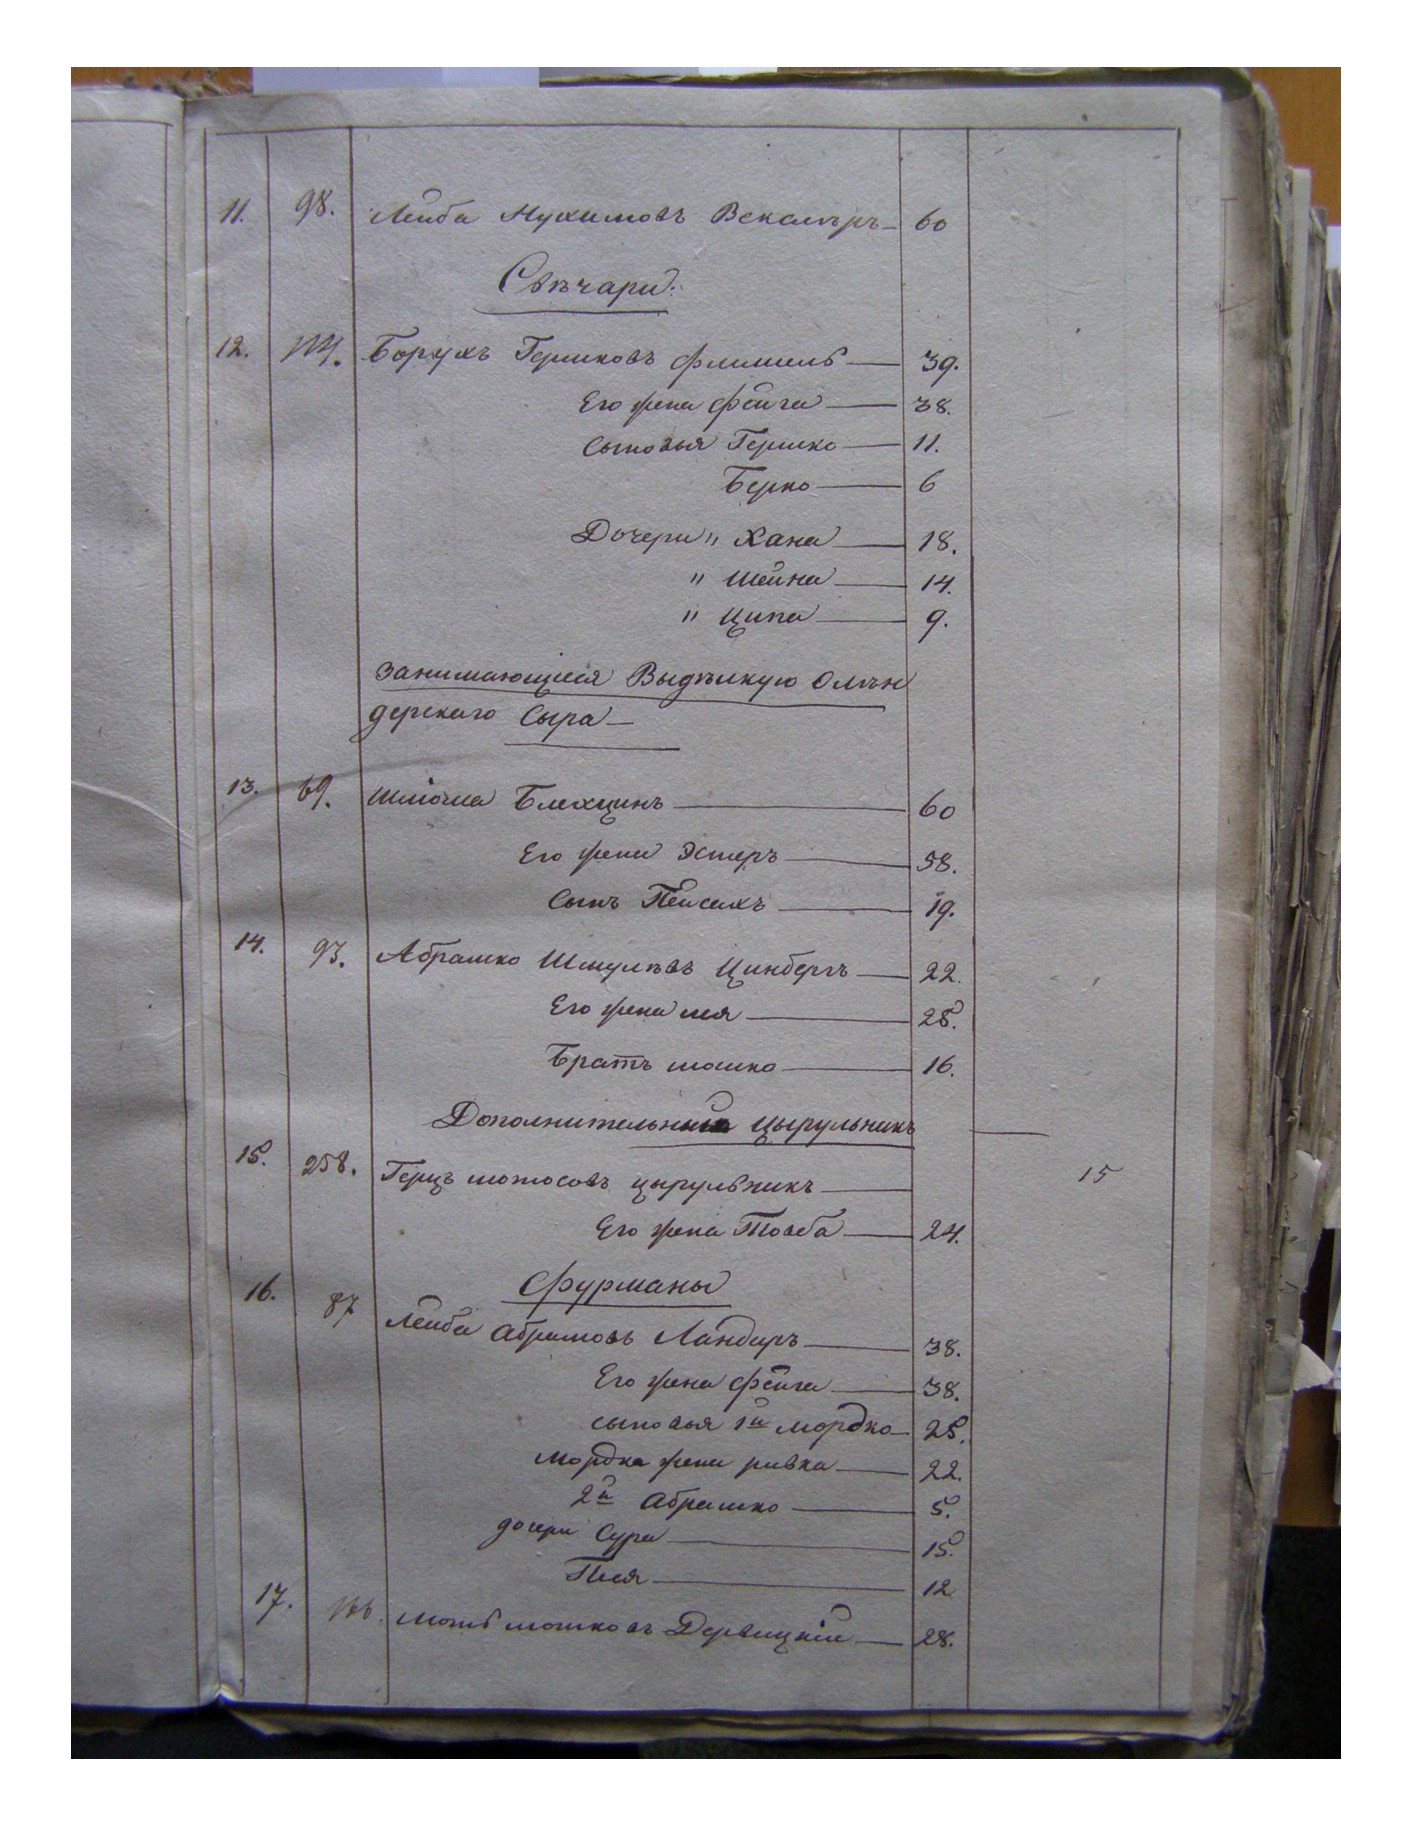 11. 98. Лейба Нухимовъ Векслеръ 60
Свѣчари.
12. Борухъ Гершковъ 39.
Его жена Фейга 38.
Сыновья Гершко 11.
Берко 6
Дочери " Хана 18.
" Шейна 14.
" Ципа 9.
Занимающіеся Выдѣлкую Олѣн
дерскаго Сыра
13. 69. Шліома 60
Его жена Эстеръ 58.
Сынъ Пейсахъ 19.
14. 93. Абрашко Шмулевъ Цинбергъ 22.
Его жена лея 25.
Братъ мошко 16.
Цырульникъ
15. 258. Герцъ цырульникъ 15
Его жена Товба 24.
Фурманы
16. 87 Лейба Абрамовъ Ландаръ 38.
Его жена Фейга 38.
сыновья 1й мордко 25.
Мордка жена ривка 22.
2й Абрашко 5.
дочери Сура 15.
12
17. мошковъ 28.